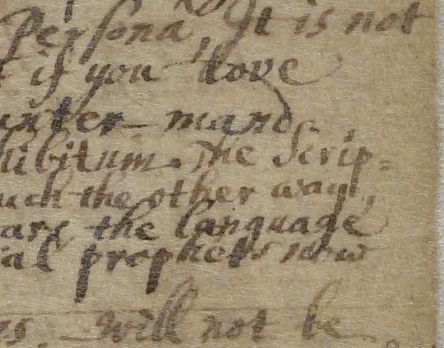 Persona, It is not
if you love
unter-mand
libitum. the Scrip=
uch the other way,
ars the language
ial prophets now
ns. will not be